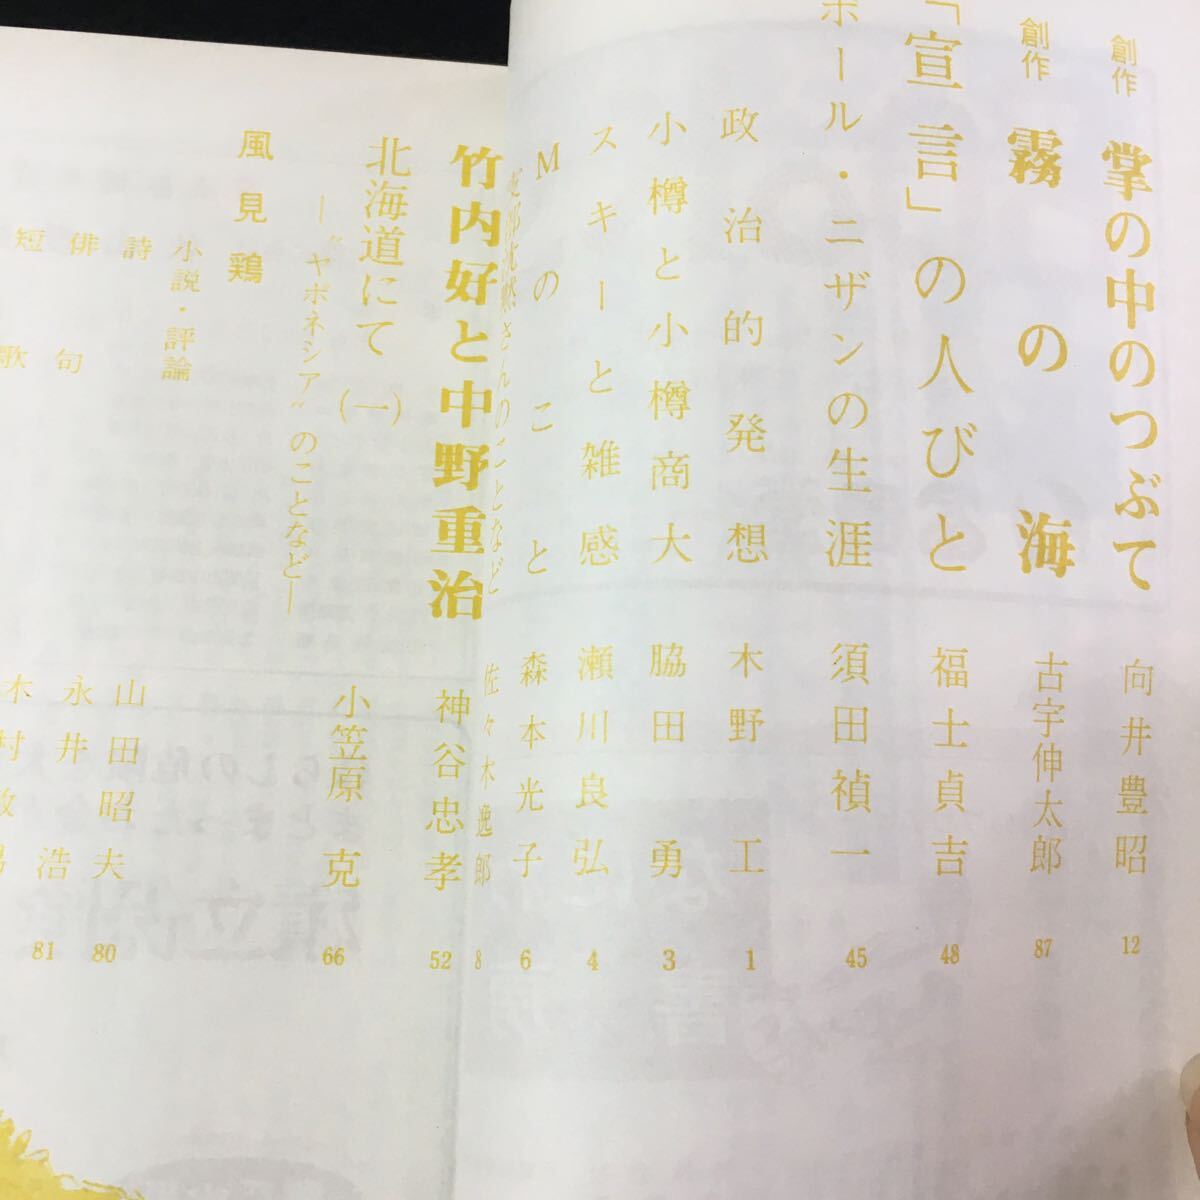 創作 掌の中のつぶて 向井豊昭 12
創作 霧の海 古宇伸太郎 87
「宣言」の人びと 福士貞吉 48
ポール・ニザンの生涯 須田禎一 45
政治的発想 木野工 1
小樽と小樽商大 脇田勇 3
スキーと雑感 瀬川良弘 4
Mのこと 森本光子 6
さんのことなど 佐々木逸郎 8
竹内好と中野重治 神谷忠孝 52
北海道にて(一) 小笠原克 66
―"ヤポネシア"のことなど―
風見鶏
小説・評論
詩 山田昭夫 80
俳句 永井浩 81
短歌 木村敏